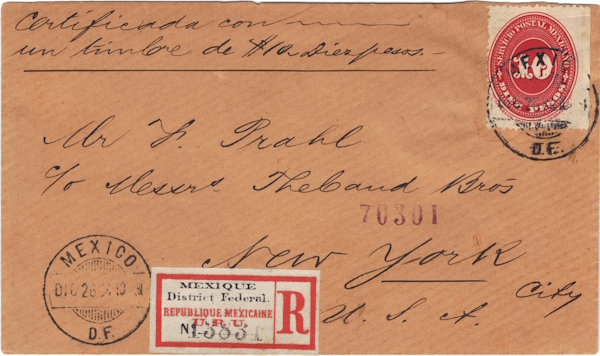 Certificada con
un timbre de $10 Diez pesos.
SERVICIO POSTAL MEXICANO
10
DIEZ PESOS
MEXICO
D.F.
Mr
Prahl
c/o Messrs Thebaud Bros
70301
New York
City
U. S. A.
MEXICO
DIC 26
D.F.
MEXIQUE
District Federal.
REPUBLIQUE MEXICAINE
U.P.U.
No.
R